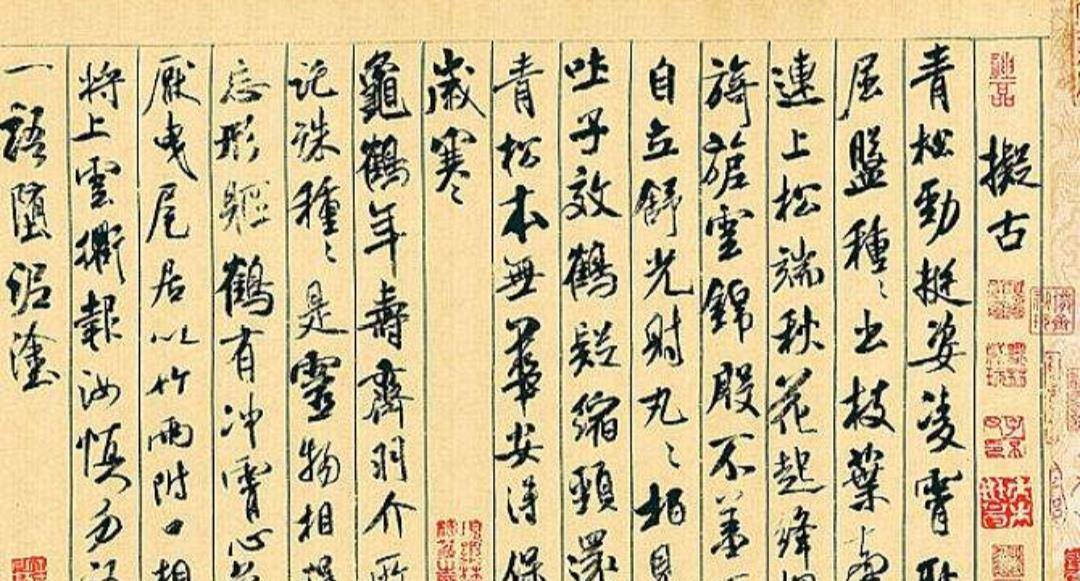 擬古
青松勁挺姿凌霄
屈盤種〻出枝葉
連上松端秋花起絳
旖旎雲錦殷不羞
自立舒光射丸〻柏
吐子效鶴疑縮頸還
青松本無華安得保
歲寒
龜鶴年壽齊羽介
記殊種〻是靈物相
忘形軀鶴有冲霄心
厭曳尾居以竹兩附口相
將上雲衢報汝慎勿
一語墮泥塗